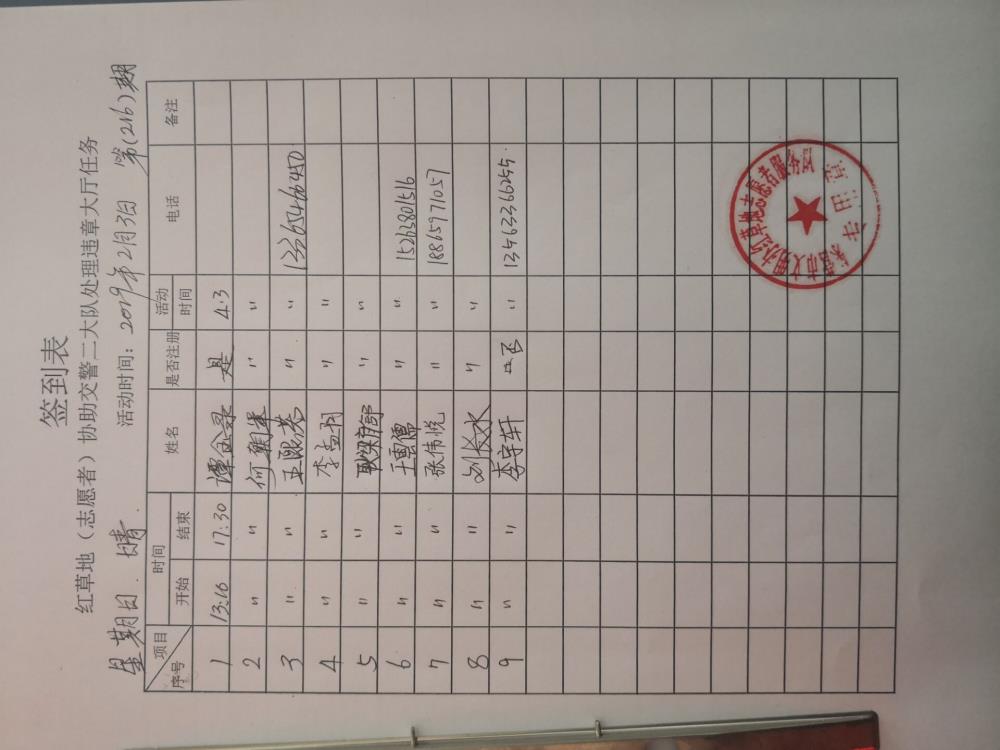 签到表
红草地（志愿者）协助交警二大队处理违章大厅任务
星期日 晴 活动时间：2019年2月3日 第（216）期
项目 时间 姓名 是否注册 活动时间 电话 备注
序号 开始 结束
1 13:10 17:30 是 4.3
2 〃 〃 何 〃 〃
3 〃 〃 〃 〃 13365466450
4 〃 〃 李 〃 〃
5 〃 〃 〃 〃
6 〃 〃 〃 〃 15263801516
7 〃 〃 张伟悦 〃 〃 18865971057
8 〃 〃 刘长水 〃 〃
9 〃 〃 李宇轩 否 〃 13463366255
红草地志愿者服务队
★
专用章